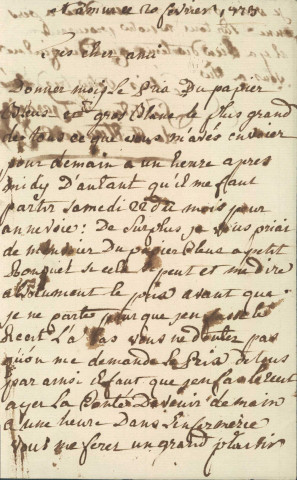 ce 20 février 177
Très cher ami
Donner mois le Prix Du papier
Bleus et gros Blanc le plus grand
de tous ce que vous m'avés envoier
pour demain a un heure apres
midy D'autant qu'il me faut
partir samedi 22 du mois pour
annessie : De Surplus je vous priai
de m'envoier Du papier bleus a petit
Bouquet si cela se peut et me dire
absolument le prix avant que
je ne parte pour que j'en fasse le
Recit L'a bas vous ne douter pas
qu'on me demande le Prix de tous
par ainsi il faut que j'en fasse le recit
ayer la Bonté De venir demain
a une heure Dans l'infirmerie
vous me ferer un grand plaisir